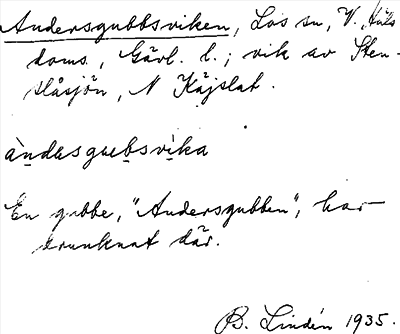 Andersgubbsviken, Los sn, V. Häls
doms., Gävl. l.; vik av Sten-
slåsjön, N Kåjslat.
àndasguebsvìka
En gubbe, "Andersgubben", har
drunknat där.
B. Lindén 1935.